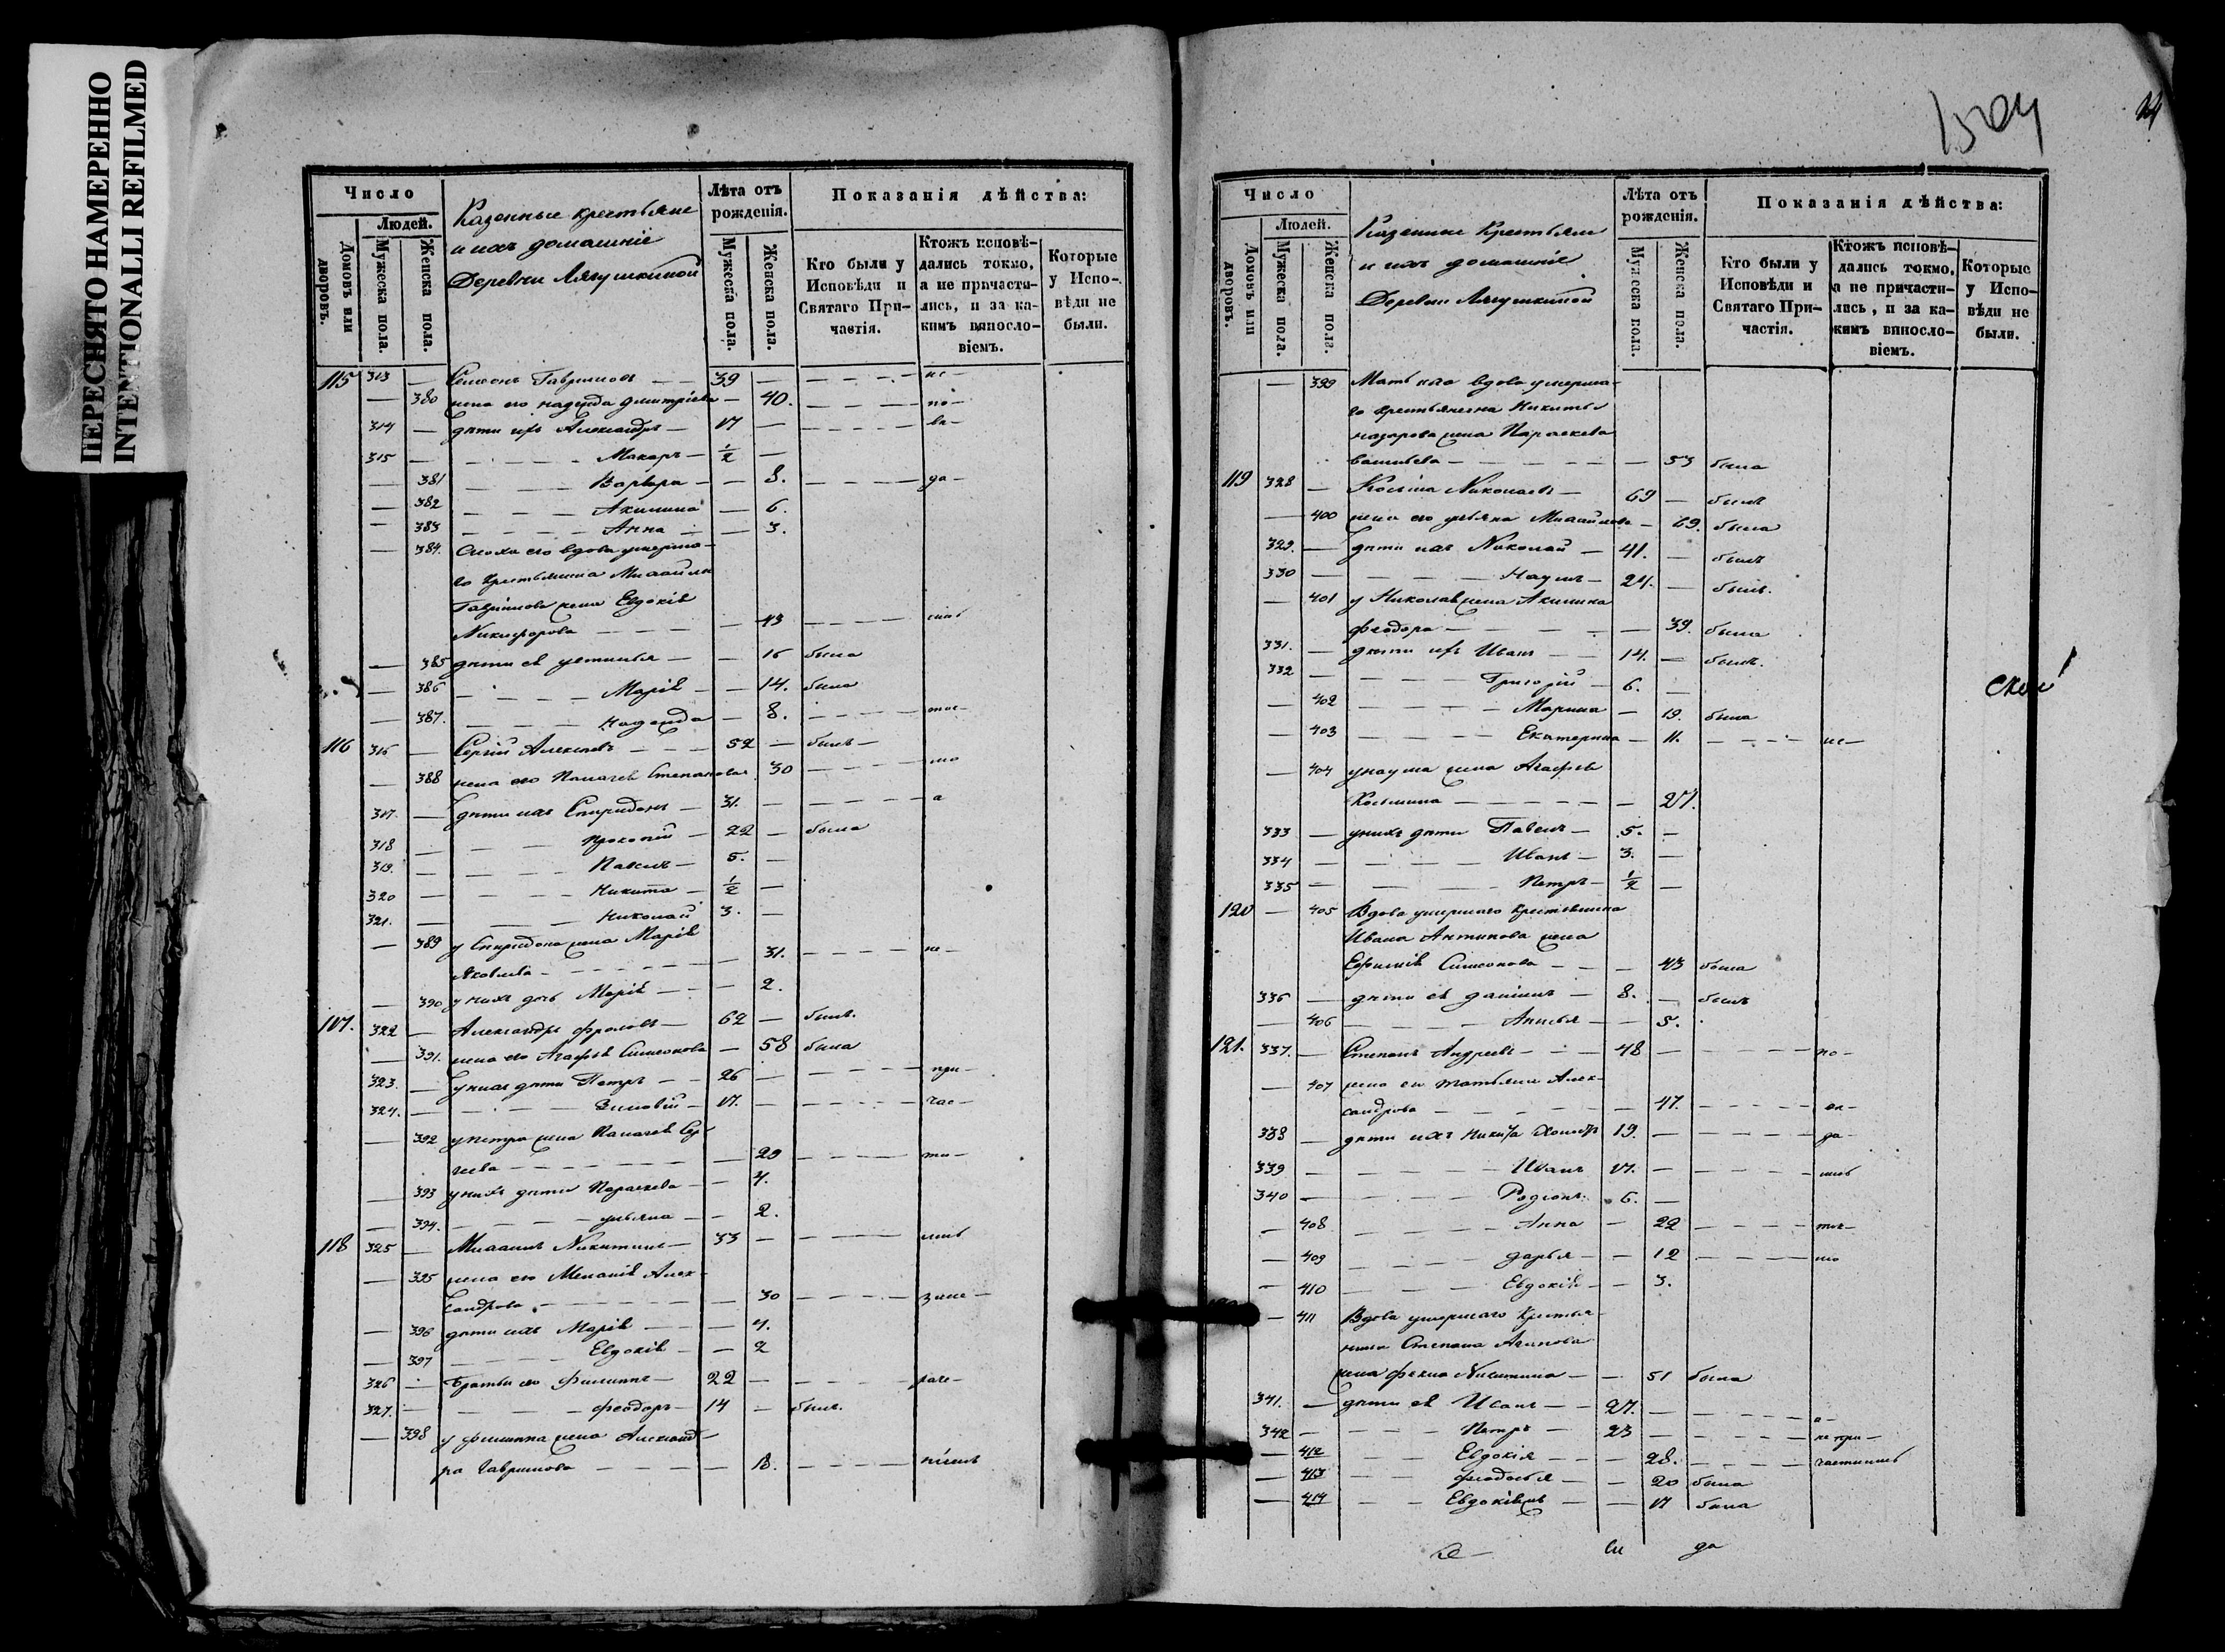 ПЕРЕСНЯТО НАМЕРЕННО
INTENTIONALLI REFILMED
Число
Людей.
Домовъ или дворовъ.
Мужеска пола.
Женска пола.
Казенные крестьяне
и ихъ домашніе
Деревни Лягушкиной
Лѣта отъ рожденія.
Мужеска пола.
Женска пола.
Показанія дѣйства:
Кто были у Исповѣди и Святаго Причастія.
Ктожъ исповѣдались токмо, а не причастились, и за какимъ винословіемъ.
Которые у Исповѣди не были.
115 313 — Семенъ Гавриловъ — 39 — не —
— 380 жена его надежда дмитріева — 40. — по —
314 — дѣти ихъ Александръ — 17 —
315 — Макаръ — 1/2 —
— 381 Варвара — 8. — да —
— 382 Акилина — 6.
— 383 Анна — 3.
— 384. Сноха его вдова умерша-
го крестьянина Михайлы
Гаврилова жена Евдокія
Никифорова — 43
— 385 дѣти ея устинья — 16 была
— 386 Марія — 14. была
— 387. надежда — 8.
116 316 — Сергій Алексѣевъ — 52 — былъ —
— 388 жена его Пелагея Степанова 30 — то
317. — дѣти ихъ Спиридонъ — 31. — а
318 — Прокопій — 22 — была
319. — Павелъ — 5. —
320 — Никита — 1/2 —
321. — Николай 3. —
— 389 у Спиридона жена Марія
Яковлева — 31. — не —
— 390 у нихъ дочь Марія — 2.
117. 322 — Александръ фроловъ — 62 — былъ.
— 391. жена его Агафья Симеонова — 58 была
323. — у нихъ дѣти Петръ — 26 — при —
324. — Зиновій — 17. — час —
— 392 у петра жена Пелагея Сер-
гѣева — 20 — ти —
— 393 у нихъ дѣти Параскева — 4.
— 394. ульяна — 2.
118 325 — Михаилъ Никитинъ — 33 —
— 395 жена его Меланія Алек-
сандрова — 30
— 396 дѣти ихъ Марія — 4.
— 397 Евдокія — 2
326 — братья его Филиппъ — 22 —
327. — феодоръ — 14 — былъ.
— 398 у филиппа жена Александ-
ра Гаврилова — 18.
Число
Людей.
Домовъ или дворовъ.
Мужеска пола.
Женска пола.
Казенные Крестьяне
и ихъ домашніе
Деревни Лягушкиной
Лѣта отъ рожденія.
Мужеска пола.
Женска пола.
Показанія дѣйства:
Кто были у Исповѣди и Святаго Причастія.
Ктожъ исповѣдались токмо, а не причастились, и за какимъ винословіемъ.
Которые у Исповѣди не были.
— 399 Мать его вдова умерша-
го крестьянина Никиты
назарова жена Параскева
васильева — 53 была
119 328 — Косьма Николаевъ — 69 — былъ
— 400 жена его ульяна Михайлова — 69. была
329. — дѣти ихъ Николай — 41. — былъ
330 — Наумъ — 24. — былъ.
— 401 у Николая жена Акилина
феодора — 39. была
331. — дѣти ихъ Иванъ — 14. — былъ.
332 — Григорій — 6. —
— 402 Марина — 19. была
— 403 Екатерина — 11. — не —
— 404 у наума жена Агафья
Косьмина — 27.
333 — у нихъ дѣти Павелъ — 5. —
334 — Иванъ — 3. —
335 — Петръ — 1/2 —
120 — 405 Вдова умершаго крестьянина
Ивана Антипова жена
Ефимія Симеонова — 43 была
336 — дѣти ея даніилъ — 8. — былъ
— 406 Анисья — 5.
121. 337. — Степанъ Андреевъ — 48 — по —
— 407 жена его татьяна Алек-
сандрова — 47.
338 — дѣти ихъ Никита 19. — да —
339 — Иванъ 17. —
340 — Родіонъ 6. —
— 408 Анна — 22 — ток —
— 409 дарья — 12 — мо
— 410 Евдокія — 3.
— 411 Вдова умершаго крестья-
нина Степана Агапова
жена фекла Никитина — 51 была
341. — дѣти ея Иванъ — 27. — а —
342 — Петръ — 23 — не при —
— 412 Евдокія — 28. — частились
— 413 феодосья — 20 была
— 414 Евдокія — 17 была
да